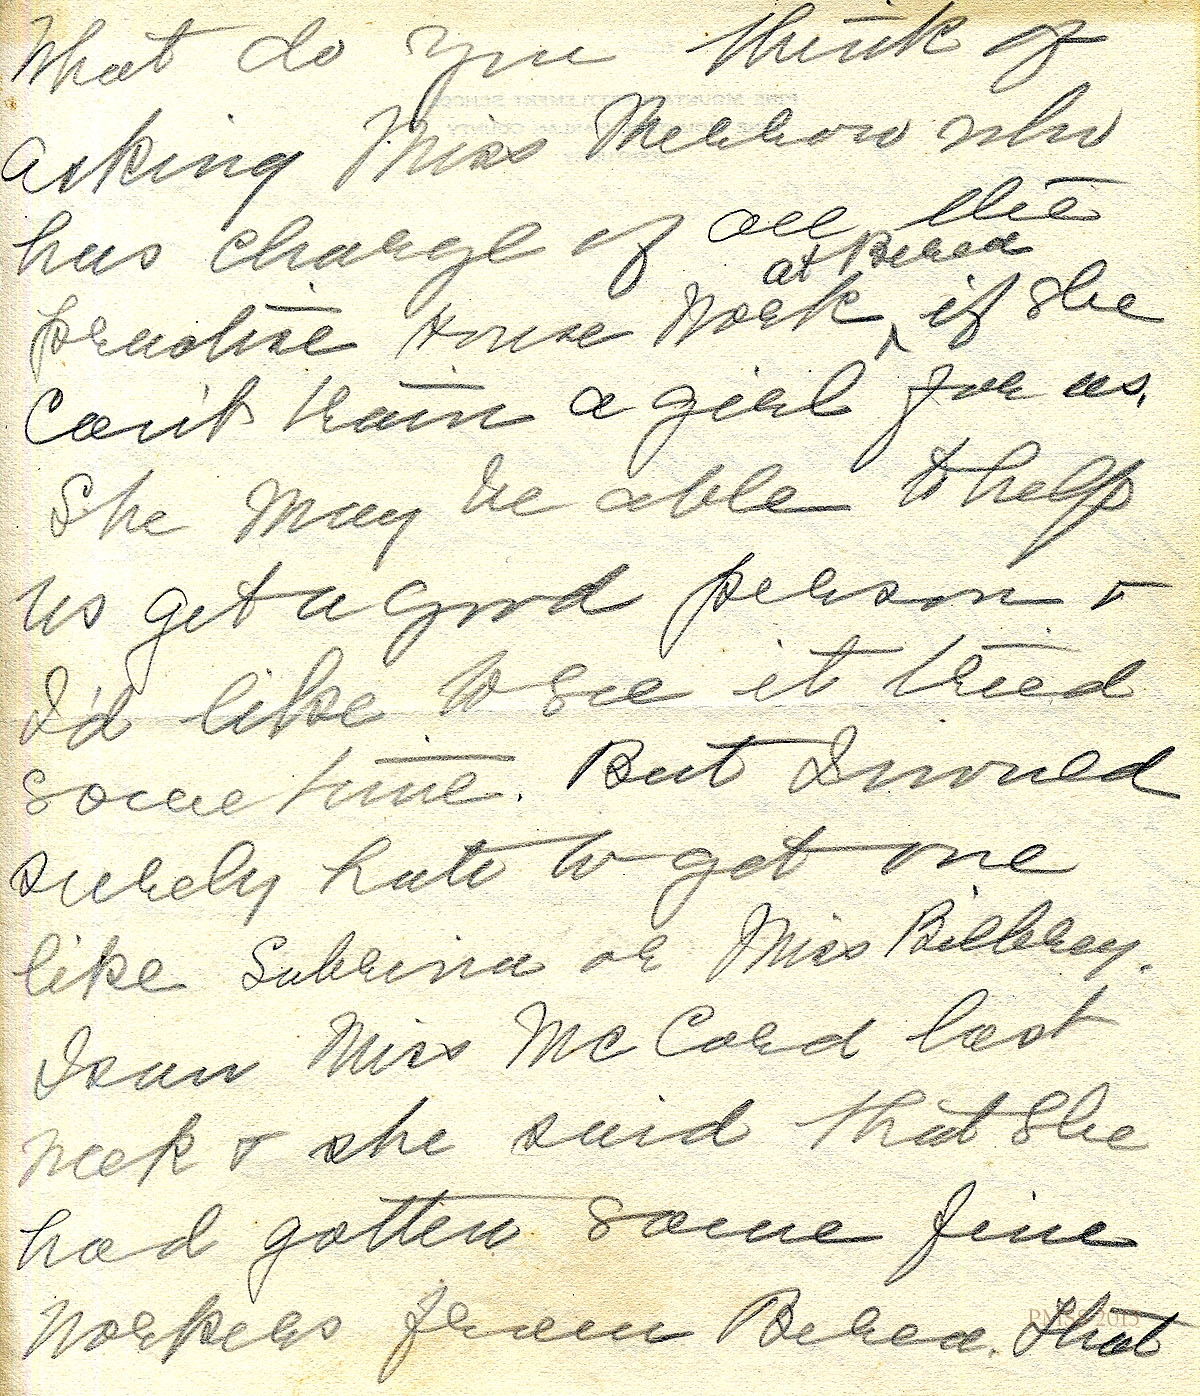 What do you think of
PINE MOUNTAIN SETTLEMENT SCHOOL
asking Miss Merrow who
has charge of all the
at Berea
practise House Work ^ if she
can't train a girl for us.
She may be able to help
us get a good person &
I'd like to see it tried
sometime. But I would
surely hate to get one
like Subrina or Miss Bilbrey.
I saw Miss McCord last
week & she said that she
had gotten some fine
workers from Berea. That
PMSS 2013